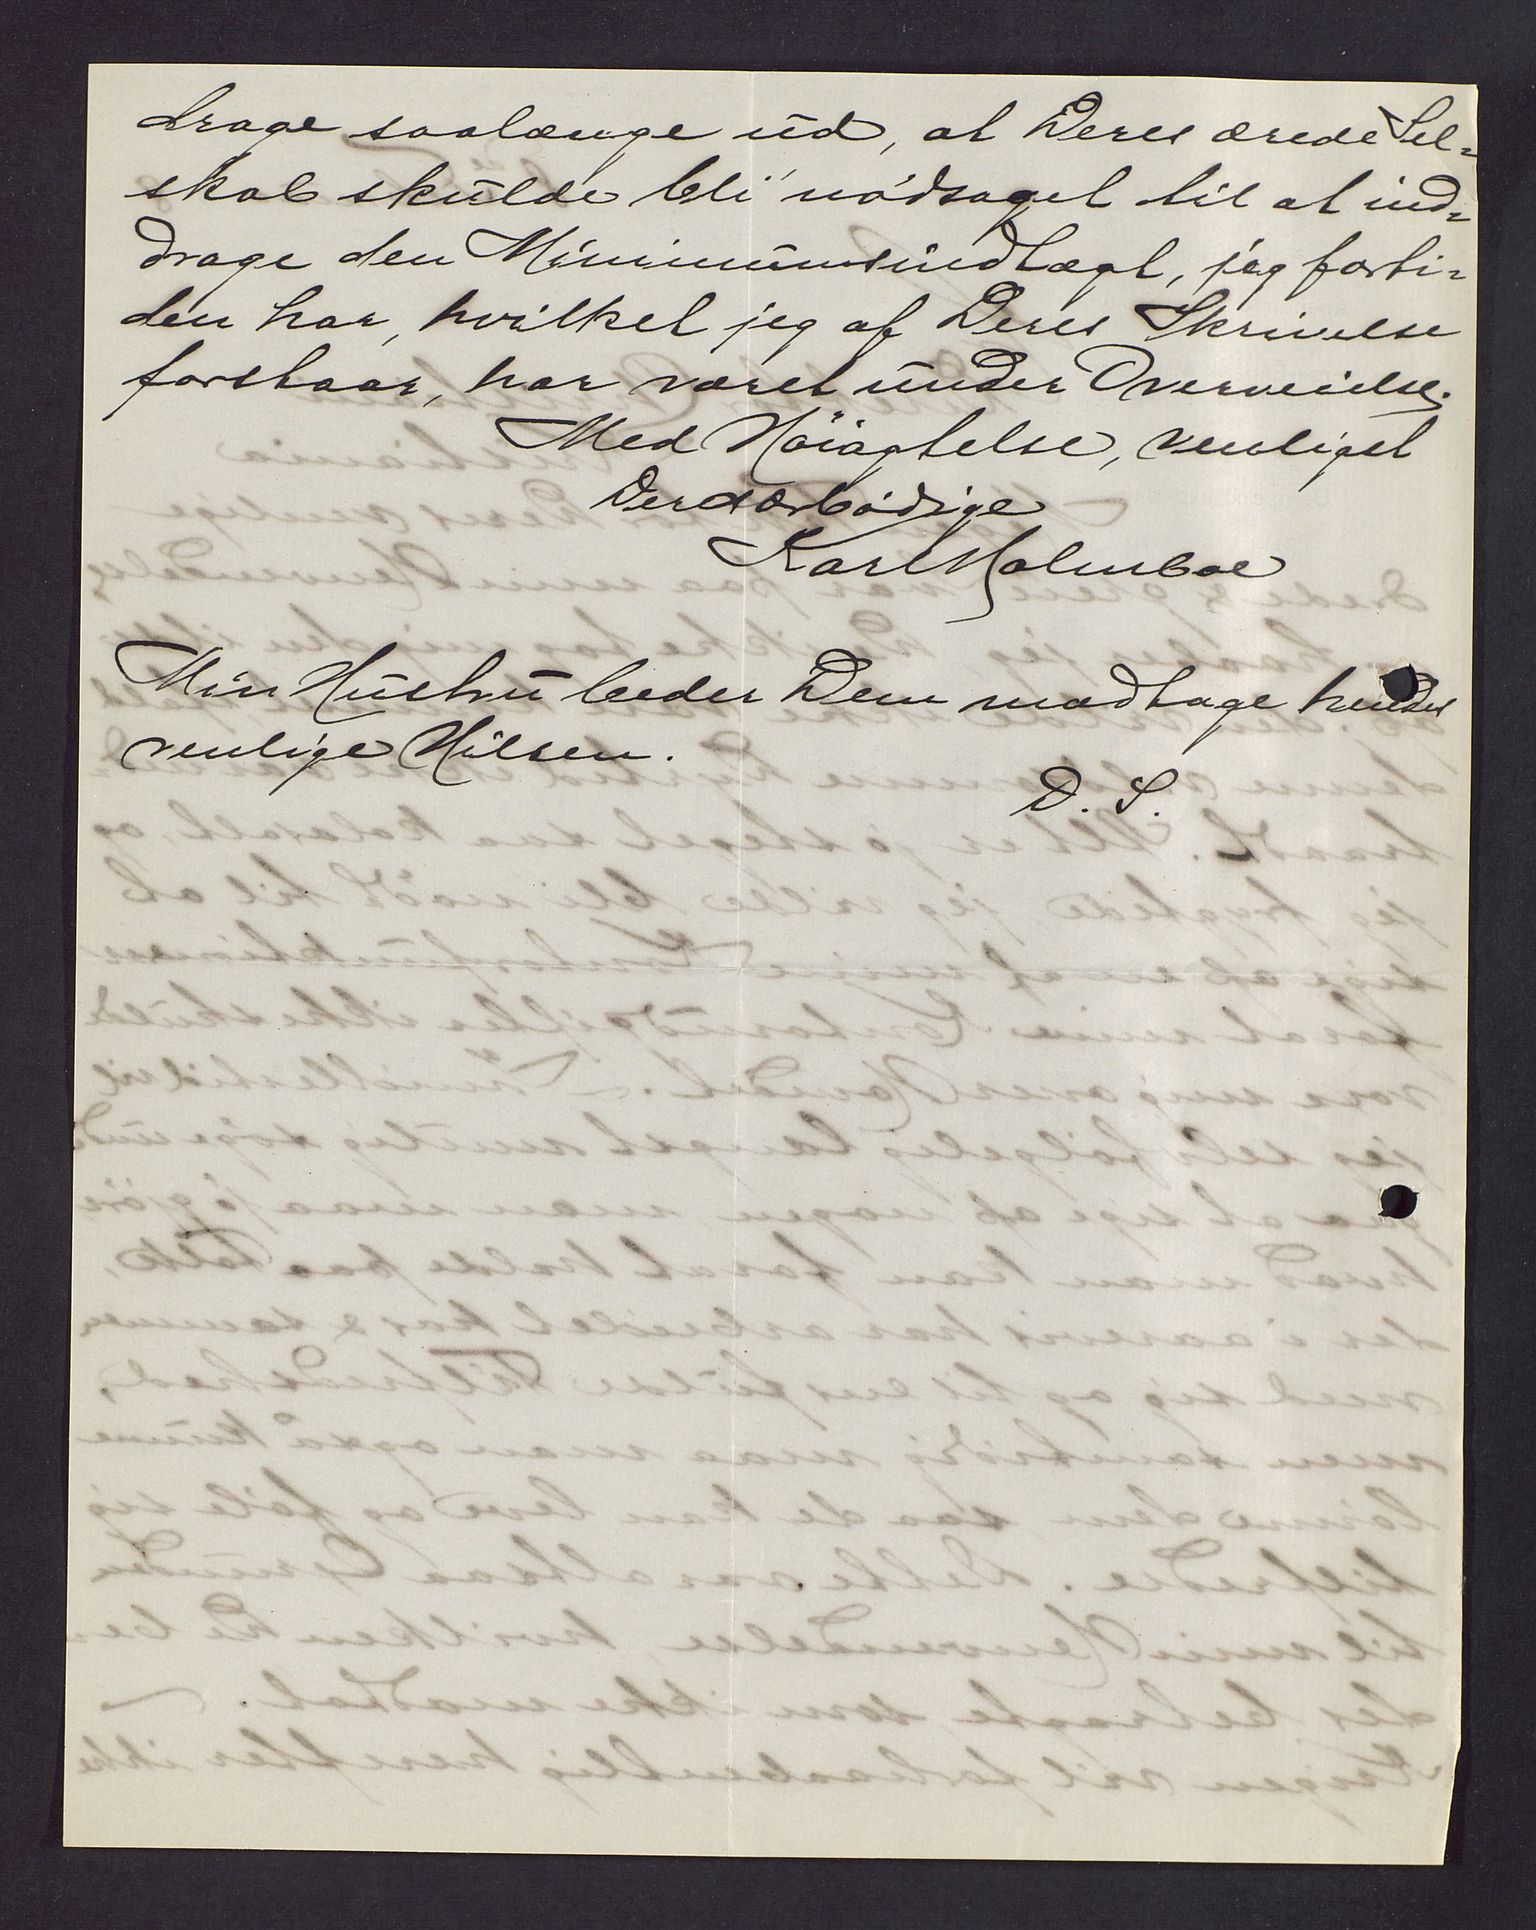 drage saalænge ud, at Deres ærede Sel=
skab skulde bli nødsaget til at ind=
drage den Minimumsindtægt, jeg forti=
den har, hvilket jeg af Deres Skrivelse
forstaar, har været under Overveielse.
Med Høiagtelse, venligst
Deres ærbødige
Karl Holmboe
Min Hustru beder Dem modtage hendes
venlige Hilsen.
D. S.